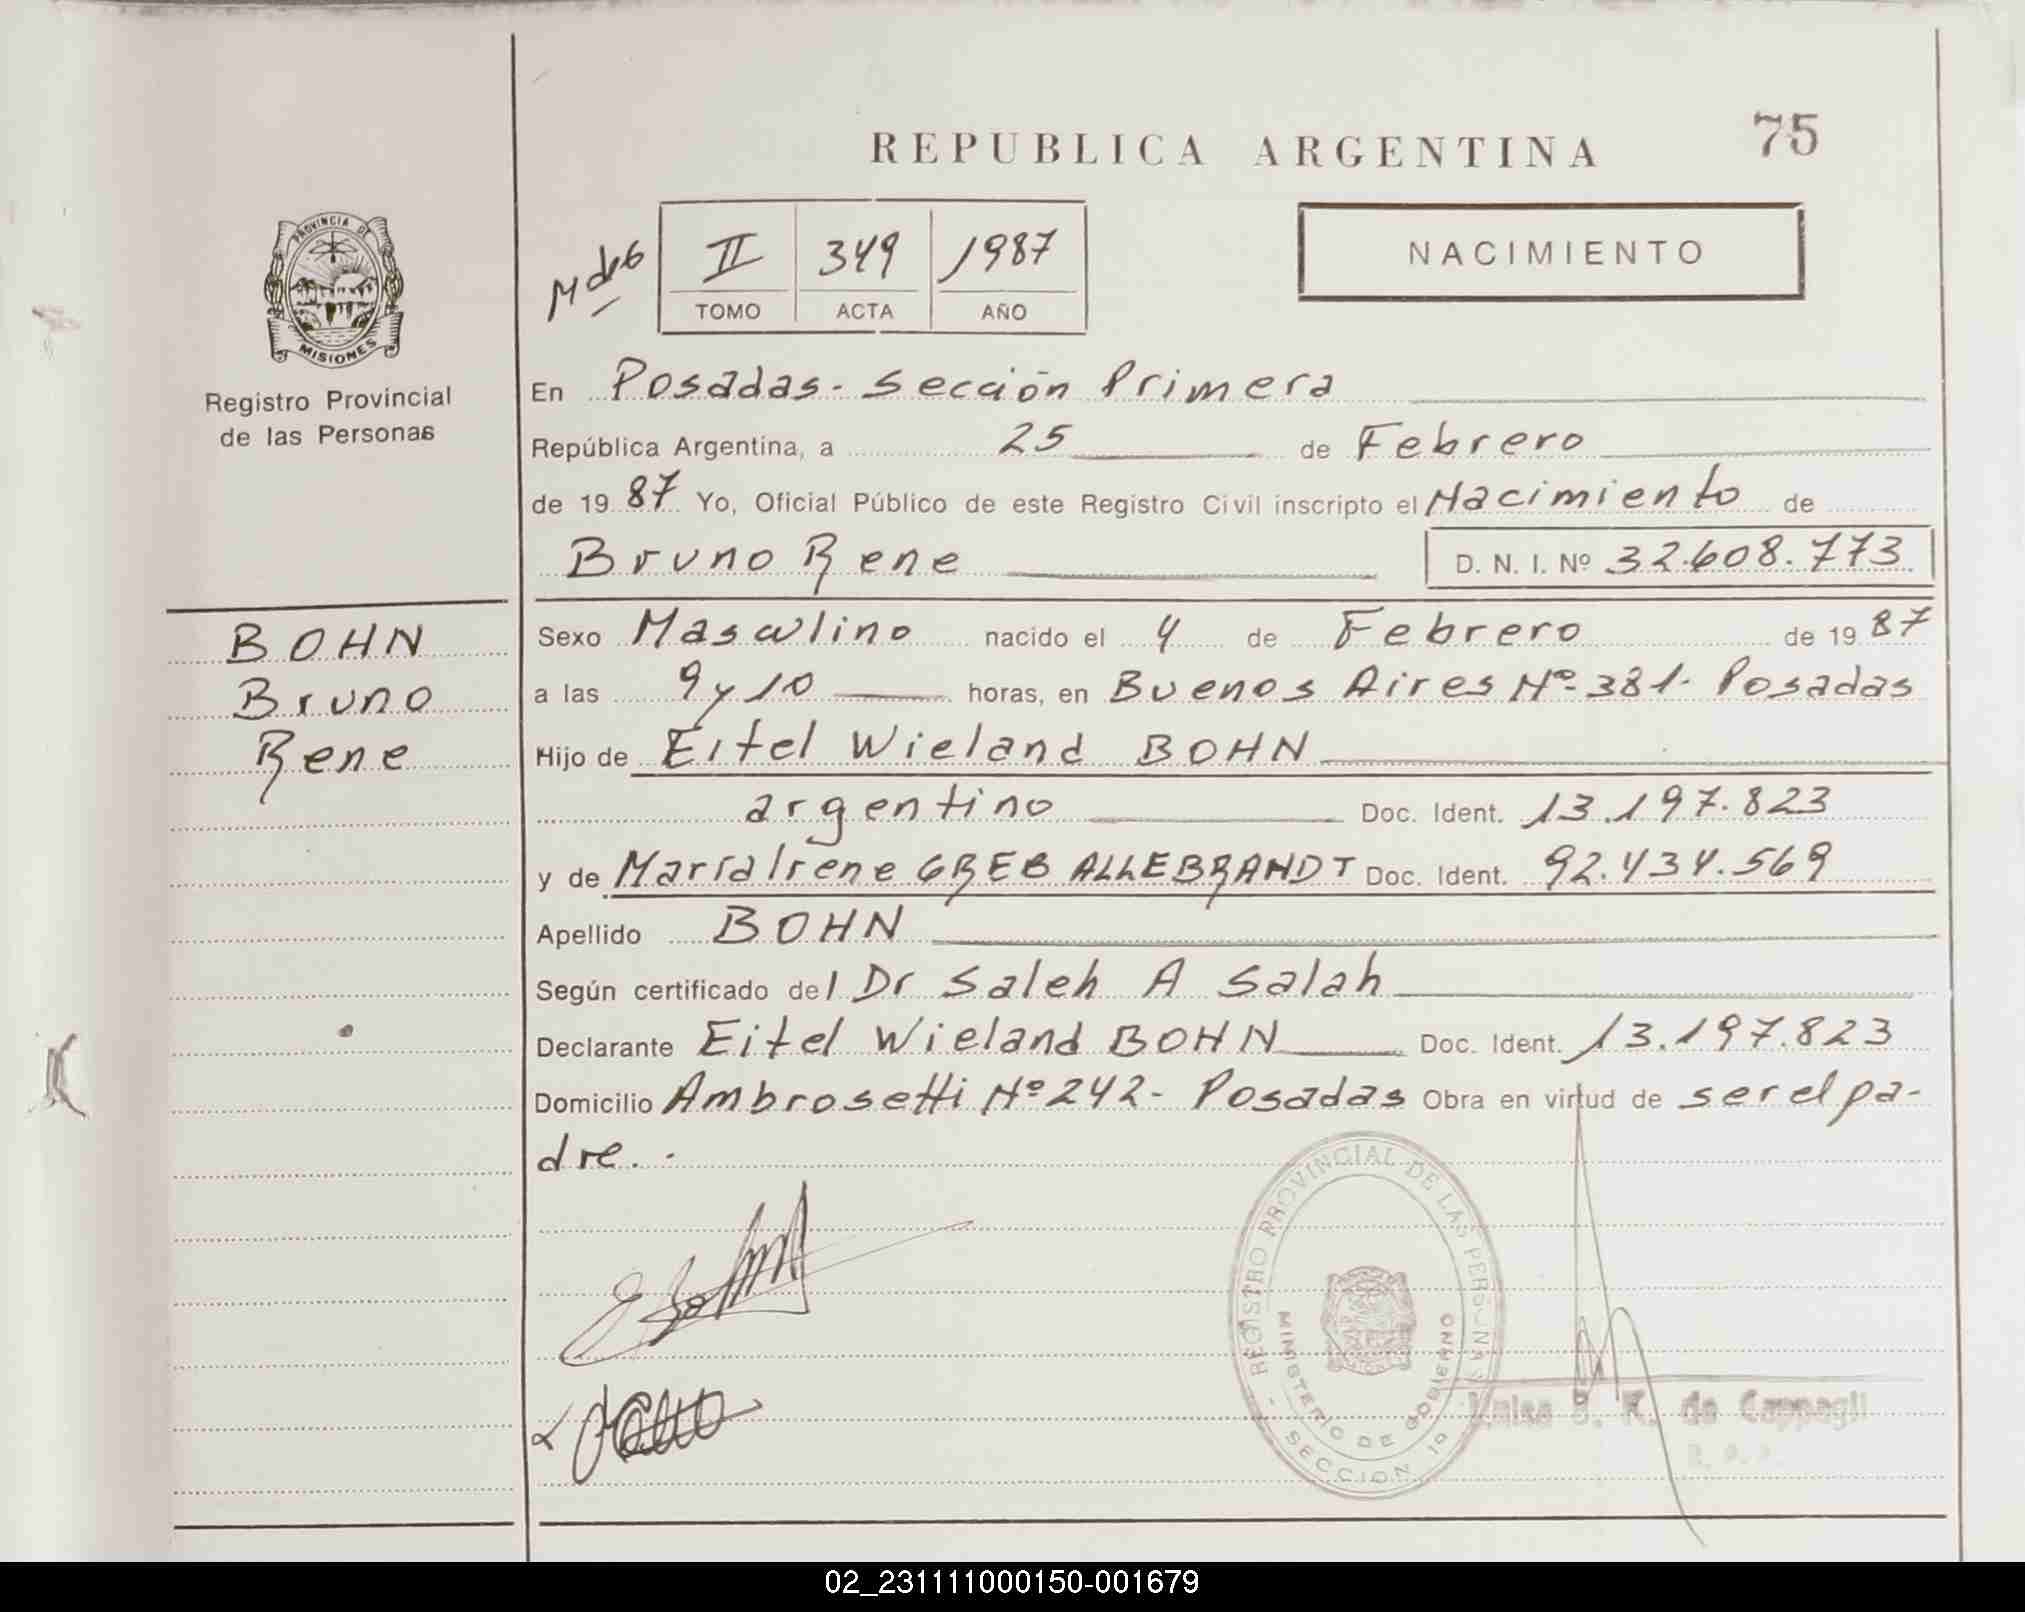 REPUBLICA ARGENTINA
75
PROVINCIA DE
MISIONES
Registro Provincial
de las Personas
II 349 1987
TOMO ACTA AÑO
NACIMIENTO
En Posadas - Sección Primera
República Argentina, a 25 de Febrero
de 1987 Yo, Oficial Público de este Registro Civil inscripto el Nacimiento de
Bruno Rene D. N. I. Nº 32.608.773
BOHN
Bruno
Rene
Sexo Masculino nacido el 4 de Febrero de 1987
a las 9 y 10 horas, en Buenos Aires Nº 381 - Posadas
Hijo de Eitel Wieland BOHN
argentino Doc. Ident. 13.197.823
y de María Irene GREB ALLEBRANDT Doc. Ident. 92.434.569
Apellido BOHN
Según certificado del Dr Saleh A Salah
Declarante Eitel Wieland BOHN Doc. Ident. 13.197.823
Domicilio Ambrosetti Nº 242 - Posadas Obra en virtud de ser el pa-
dre. -
REGISTRO PROVINCIAL DE LAS PERSONAS
MINISTERIO DE GOBIERNO
SECCION 1º
de Cappagli
02_231111000150-001679